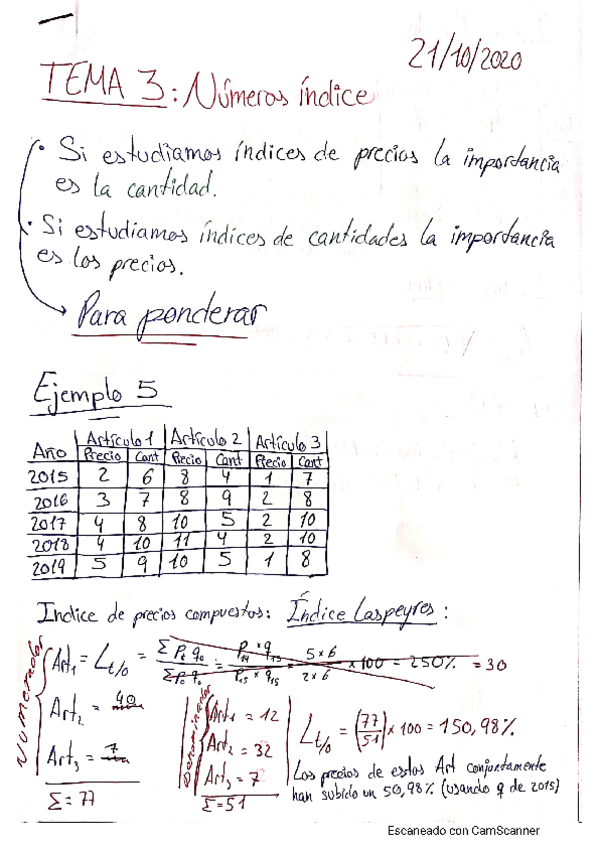 21/10/2020
TEMA 3: Números índice
· Si estudiamos índices de precios la importancia
es la cantidad.
· Si estudiamos índices de cantidades la importancia
es los precios.
→ Para ponderar
Ejemplo 5
Artículo 1 Artículo 2 Artículo 3
Año Precio Cant Precio Cant Precio Cant
2015 2 6 8 4 1 7
2016 3 7 8 9 2 8
2017 4 8 10 5 2 10
2018 4 10 11 4 2 10
2019 5 9 10 5 1 8
Indice de precios compuestos: Índice Laspeyres:
Numerador
Art₁ = Lt/o = Σ Pt q₀ / Σ P₀ q₀ = P₁₉ × q₁₅ / P₁₅ × q₁₅ = 5 x 6 / 2 x 6 x 100 = 250% = 30
Art₂ = 40
Art₃ = 7
Σ = 77
Denominador
Art₁ = 12
Art₂ = 32
Art₃ = 7
Σ = 51
Lt/o = (77/51) x 100 = 150,98%
Los precios de estos Art conjuntamente
han subido un 50,98% (usando q de 2015)
Escaneado con CamScanner